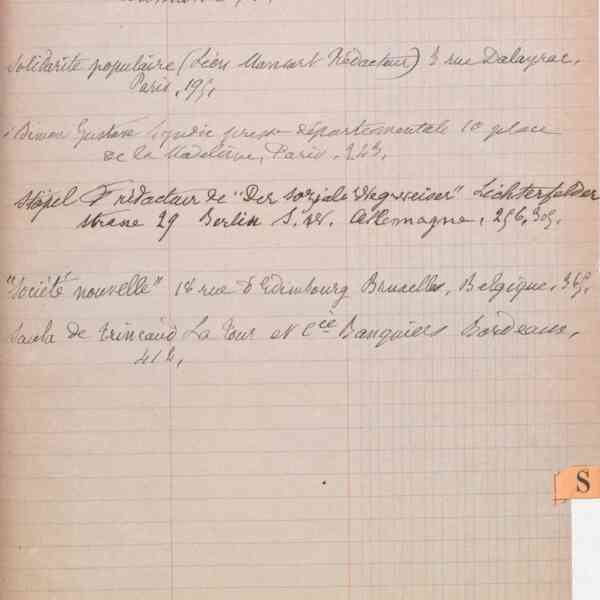 Solidarité populaire (Léon Mansart Rédacteur) 3 rue Dalayrac,
Paris, 195,
Simon Gustave Syndic presse départementale 10 place
de la Madeleine, Paris, 243,
Stöpel F rédacteur de "Der soziale Wegweiser" Lichterfelder
strasse 29 Berlin S.W. Allemagne, 256, 305,
"Société nouvelle" 18 rue d'Edimbourg Bruxelles, Belgique, 365,
de Trincaud La Tour et Cie Banquiers Bordeaux,
412,
S